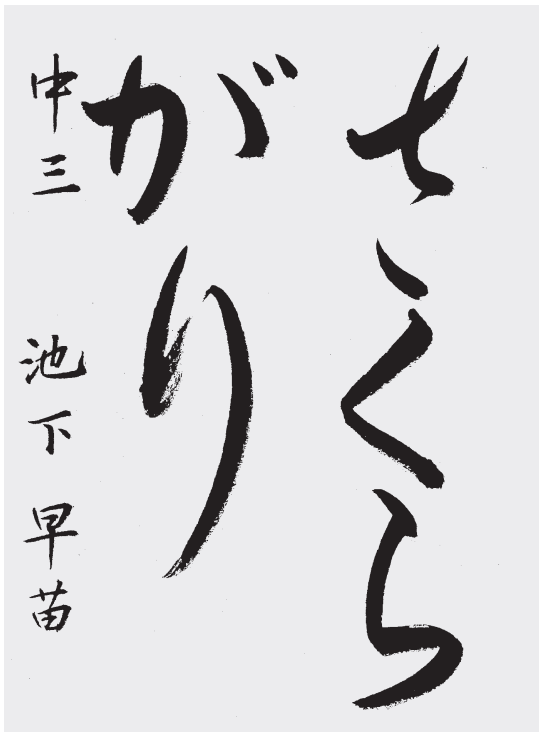 さくら
がり
中三 池下 早苗